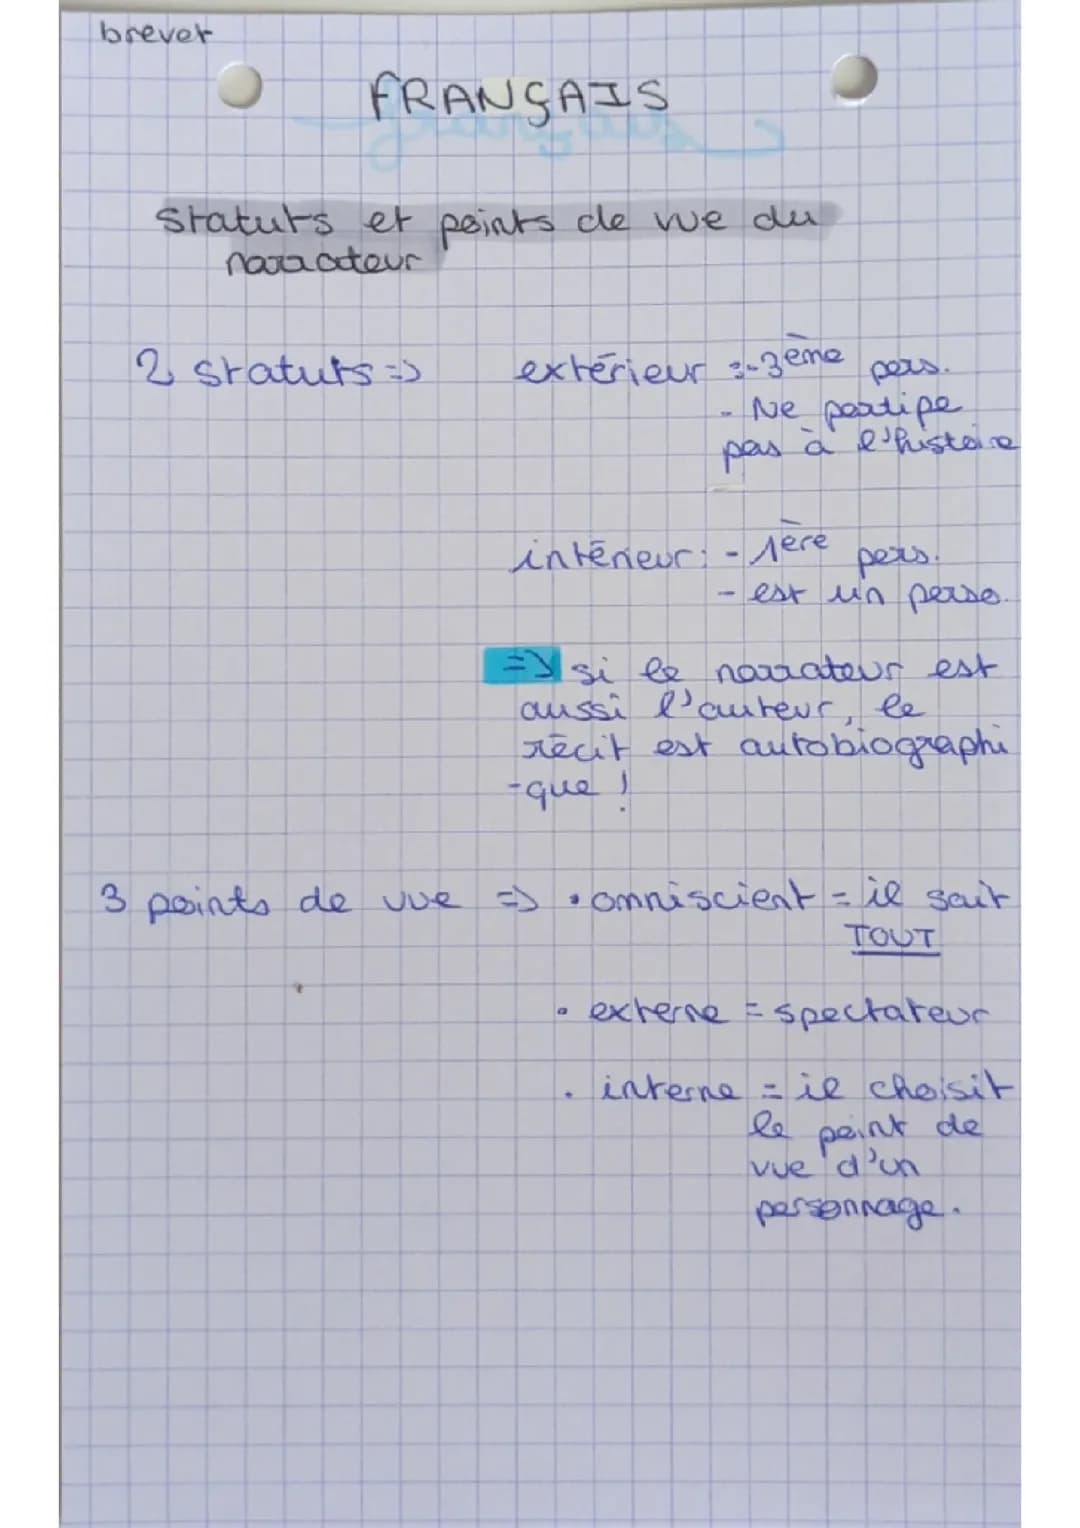 brevet
FRANÇAIS
statuts et points de vue du
narrateur
2 statuts => extérieur :-3ème pers.
- Ne partipe
pas à l'histoire
intérieur: - 1ère pers.
- est un perso.
=> si le narrateur est
aussi l'auteur, le
récit est autobiographi
-que !
3 points de vue => • omniscient = il sait
TOUT
• externe = spectateur
• interne = il choisit
le point de
vue d'un
personnage.